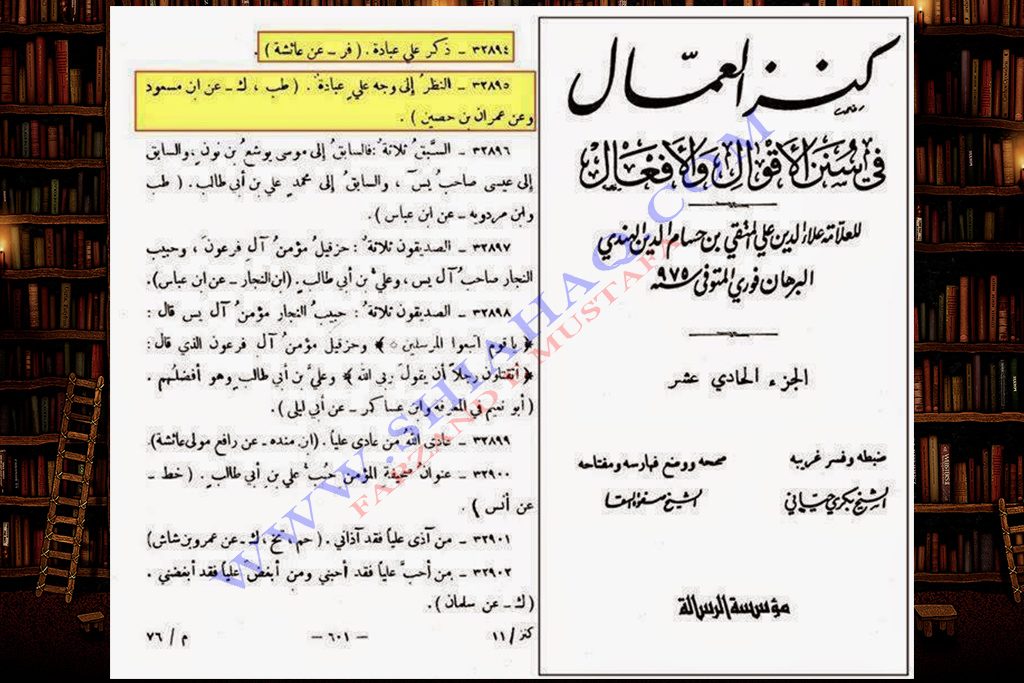 ٣٢٨٩٤ - ذكر علي عبادة . ( فر - عن عائشة ) .
٣٢٨٩٥ - النظرُ إلى وجه عليٍ عبادةٌ . ( طب ، ك - عن ابن مسعود
وعن عمران بن حصين ) .
٣٢٨٩٦ - السبَّقُ ثلاثةٌ : فالسابقُ إلى موسى يوشعُ بن نون ، والسابق
إلى عيسى صاحبُ يسٓ ، والسابقُ إلى محمدٍ علي بن أبي طالب . ( طب
وابن مردويه - عن ابن عباس ) .
٣٢٨٩٧ - الصديقون ثلاثةٌ : حزقيلُ مؤمنُ آلِ فرعونَ ، وحبيب
النجار صاحبُ آل يس ، وعليُّ بن أبي طالبٍ . (ابن النجار - عن ابن عباس) .
٣٢٨٩٨ - الصديقون ثلاثةٌ : حبيبُ النجار مؤمنُ آل يس قال :
﴿ يا قوم اتبعوا المرسلين ﴾ وحزقيل مؤمنُ آل فرعون الذي قال :
﴿ أتقتلون رجلاً أن يقولَ ربي الله ﴾ وعليُّ بن أبي طالبٍ وهو أفضلُهم .
( أبو نعيم في المعرفة وابن عساكر - عن أبي ليلى ) .
٣٢٨٩٩ - عادَى اللهُ من عادى علياً . (ابن منده - عن رافع مولى عائشة)
٣٢٩٠٠ - عنوانُ صحيفة المؤمن حُبُّ علي بن أبي طالبٍ . ( خط -
عن أنس ) .
٣٢٩٠١ - من آذى علياً فقد آذاني . ( حم ، تخ ، ك - عن عمرو بن شاش)
٣٢٩٠٢ - من أحبَّ علياً فقد أحبني ومن أبغضَ علياً فقد أبغضني .
( ك - عن سلمان ) .
كنز / ١١ - ٦٠١ - م / ٧٦
كنز العمّال
في سُنَن الأقوال والأفعال
للعلامة علاء الدين علي المتقي بن حسام الدين الهندي
البرهان فوري المتوفى سنة ٩٧٥
الجزء الحادي عشر
ضبطه وفسر غريبه
الشيخ بكري حياني
صححه ووضع فهارسه ومفتاحه
الشيخ صفوة السقا
مؤسسة الرسالة
WWW.SHIAHAQ.COM
FARZAND E MUSTAFA